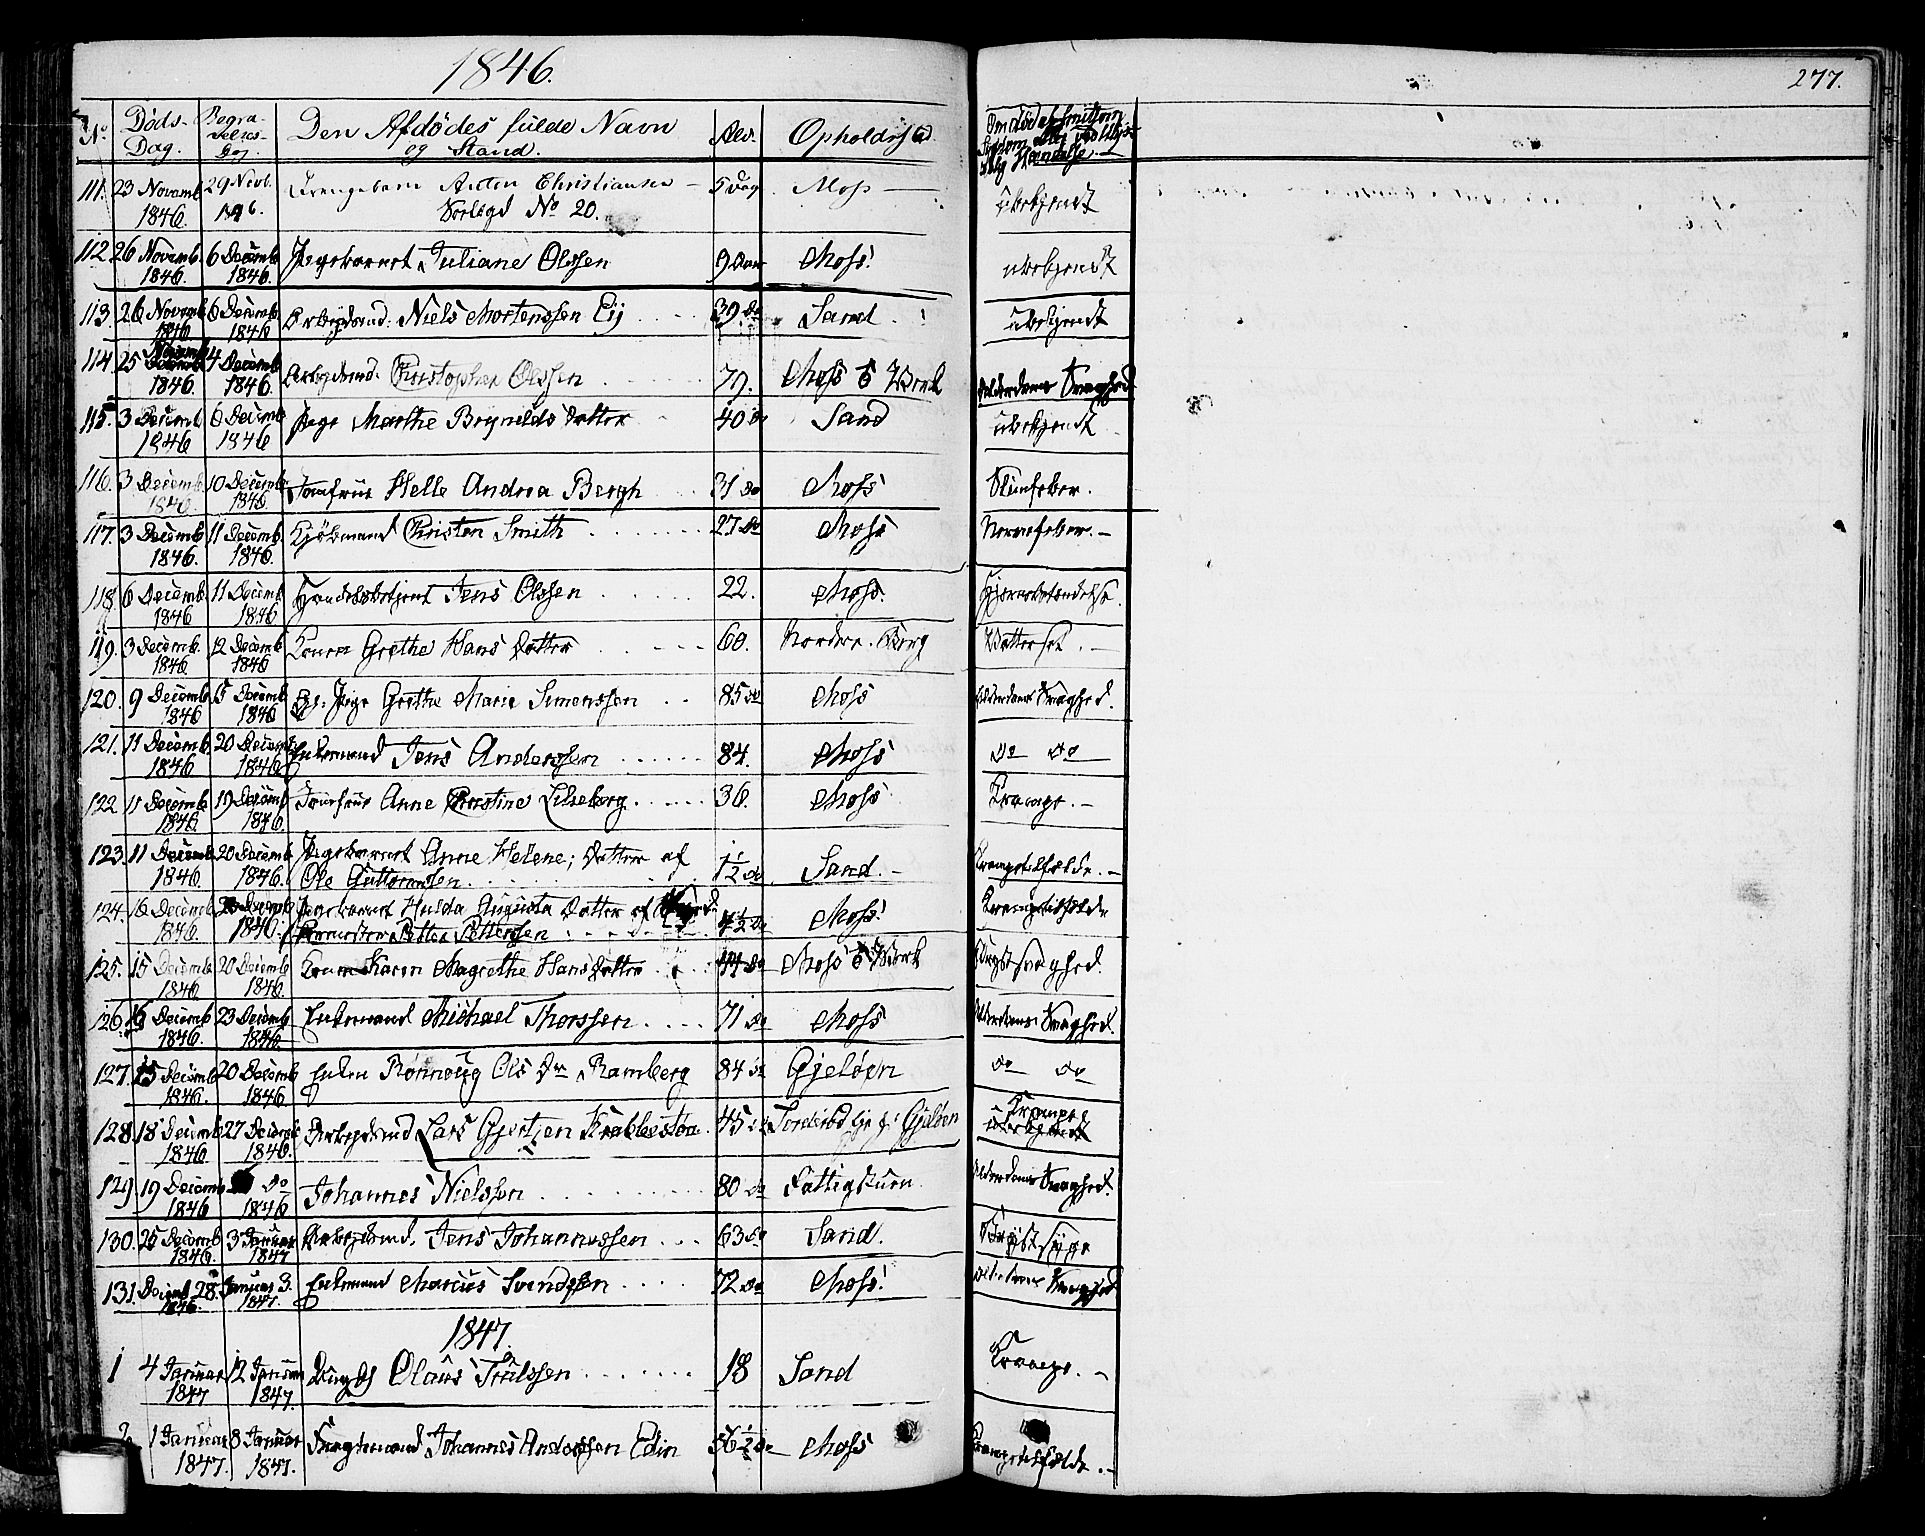 1846.
277.
No Døds- Dag. Begravelses- Dag. Den Afdødes fulde Navn og Stand. Alder Opholdssted Om død af Smitsom Sygdom eller
111. 23 Novemb. 1846. 29 Novb. 1846. Drengebarn Anton Christiansen 5 Dag Moss ubekjendt
No 20.
112. 26 Novemb. 1846. 6 Decemb. 1846. Pigebarnet Juliane Olssen Moss. ubekjendt
113. 26 Novemb. 1846 6 Decemb. 1846 Arbejdsmd. Niels Mortenssen Eij 39 do Sand. ubekjendt
114. 25 Novemb. 1846. 4 Decemb. 1846. Arbejdsmd. Christopher Olssen 79. Moss Verk Alderdoms Svaghed
115. 3 Decemb 1846 6 Decemb 1846 Pige Marthe Brynilds Datter 40 do Sand ubekjendt
116. 3 Decemb. 1846. 10 Decemb. 1846. Jomfrue Helle Andrea Bergh 31 do Moss
117. 3 Decemb 1846. 11 Decemb. 1846. Kjøbmand Christen Smith 27 do Moss Nervefeber.
118. 6 Decemb. 1846 11 Decemb. 1846 Handelsbetjent Jens Olssen 22. Moss. Hjernebetændelse.
119. 3 Decemb. 1846 12 Decemb 1846 Konen Grethe Hans Datter 60. Nordre Berg Vattersot.
120. 9 Decemb. 1846 15 Decemb. 1846 Pige Grethe Marie Simenssen 85 do Moss Alderdoms Svaghed.
121. 11 Decemb. 1846 20 Decemb. 1846 Enkemand Jens Anderssen 84. Moss do do
122. 11 Decemb 1846. 19 Decemb 1846. Jomfrue Anne Christine Lilleborg 36. Moss Krampe.
123. 11 Decemb 1846. 20 Decemb 1846. Pigebarnet Anne Helene; Datter af
Ole Guttormsen 1 1/2 do. Sand. Krampetilfælde.
124. 16 Decemb 1846. 1846. Pigebarnet Hulda Augusta Datter af
Petter Pettersen 4 1/2 do Moss Krampetilfælde
125. 15 Decemb 1846. 20 Decemb 1846. Konen Karen Magrethe Hans Datter 44 do Moss Verk Brystsvaghed.
126. 16 Decemb 1846. 23 Decemb. 1846 Enkemand Michael Thorssen 71 do Moss Alderdoms Svaghed.
127. 15 Decemb 1846. 20 Decemb 1846 Enken Rønnoug Ols Dr Ramberg 84 do Gjeløen do do
128. 18 Decemb 1846 27 Decemb 1846. Arbejdsmd Lars Gjertsen Krabbestøa. 45 do Gjeløen Krampe
129. 19 Decemb 1846 do 1846 Johannes Nielssen 80 do Fattigstuen Alderdoms Svaghed.
130. 25 Decemb 1846. 3 Januar 1847 Arbejdsmd. Jens Johannessen 63 do Sand. Brystsyge
131. Decemb 28. 1846. Januar 3. 1847. Enkemand Marcus Svendssen 72 do Moss. Alderdoms Svaghed
1847.
1 4 Januar 1847 12 Januar 1847. Olaus Truldssen 18 Sand Krampe.
2 1 Januar 1847. 8 Januar 1847. Johannes Anderssen Edin 56 1/2 do Moss Krampetilfælde.